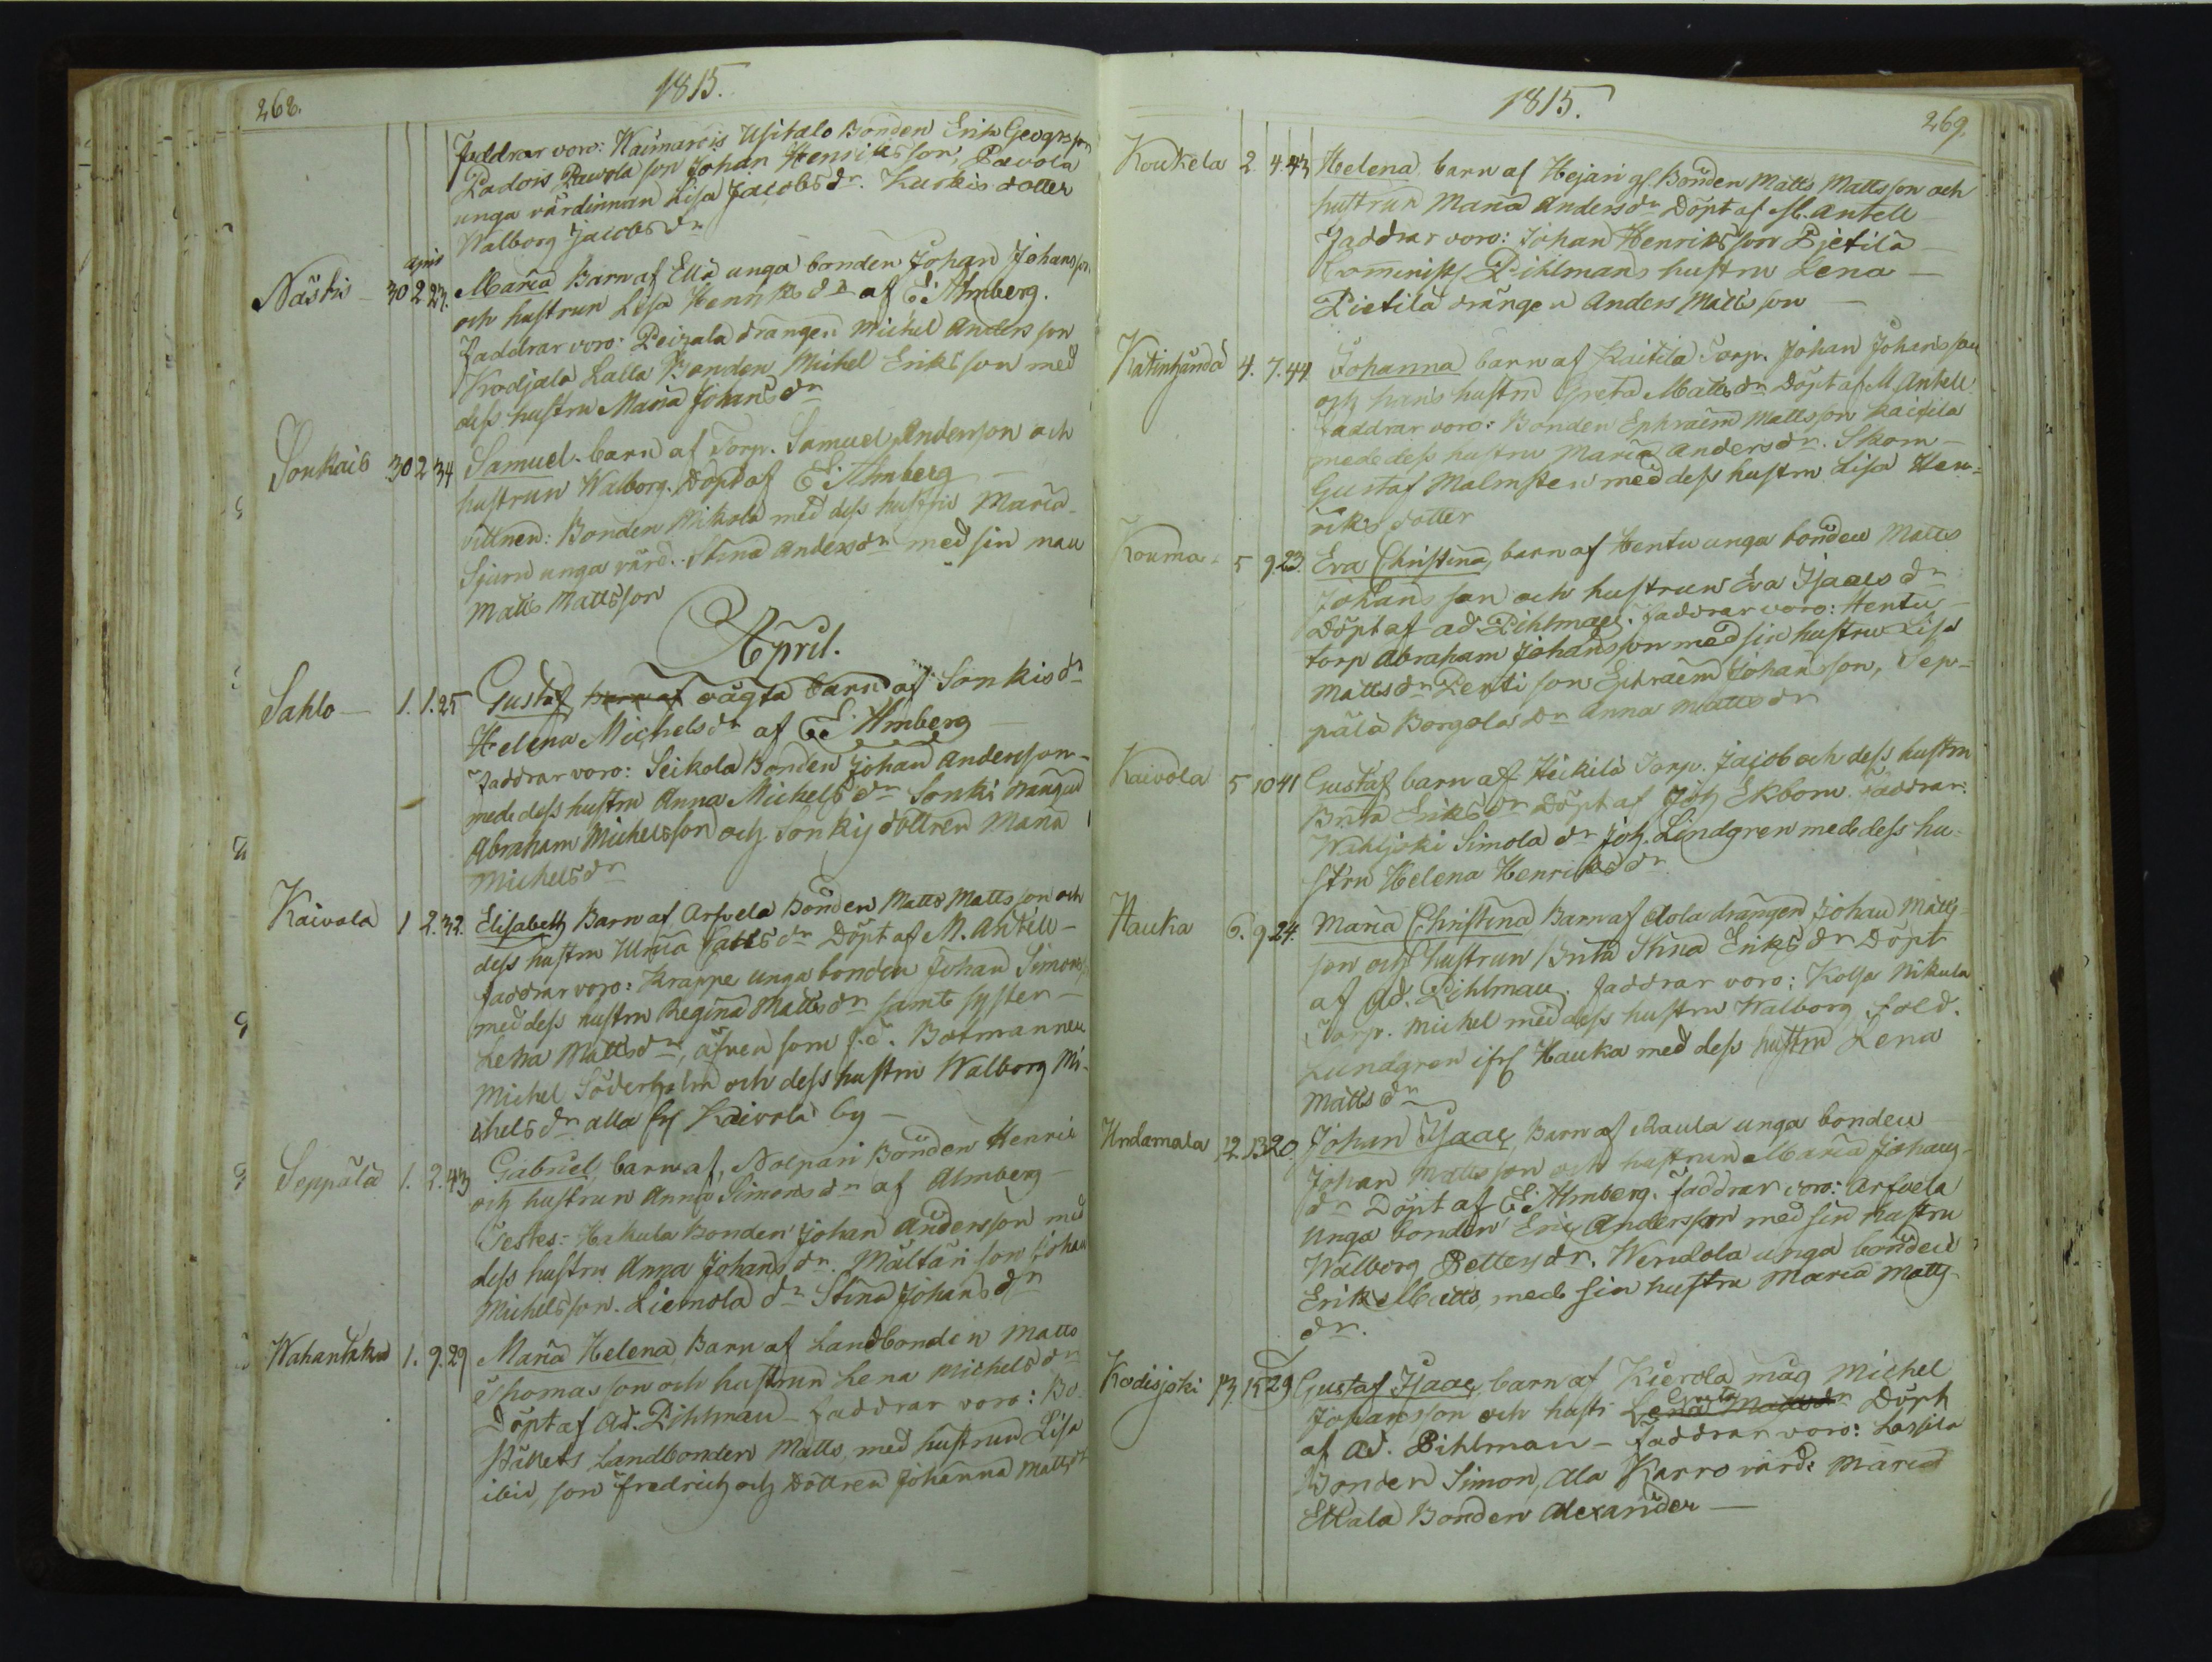 268.
1815.
Faddrar voro: Waimarois Usitalo Bonden Erik Georgsson
Padois Pawola son Johan Henriksson, Pavola
unga värdinnan Lisa Jacobsdr. Kuskis dotter
Walborg Jacobsdr
April
Nästis - 30 2 23. Maria Barn af Eliä unga bonden Johan Johansson
och hustrun Lisa Henriksdr af E. Almberg.
Faddrar voro: Peizala drängen Michel Andersson
Kodjala Lalla Bonden Michel Eriksson med
dess hustru Maria Johansdr
Soukais 30 2 34 Samuel. barn af Torp. Samuel Andersson och
hustrun Walborg. Döpt af E. Almberg
vittnen: Bonden Mikola med dess hustru Maria
Sjurn unga värd. Stina Andersdr med sin man
Matts Mattsson
April.
Sahlo - 1. 1. 25 Gustaf, barn af oägta barn af Sonkis dr
Helena Michelsdr af E. Almberg
Faddrar voro: Seikola Bonden Johan Andersson
mede dess hustru Anna Michelsdr Sonki drängen
Abraham Michelsson och Sonkis dottren Maria
Michelsdr
Kaivola 1 2. 32. Elisabeth Barn af Arfvela Bonden Matts Mattsson och
dess hustru Ulrica Mattsdr Döpt af M. Antell -
faddrar voro: Krappe unga bonden Johan Simonss.
med dess hustru Regina Mattsdr samt syster -
Lena Mattsdr, äfven som f.d. Botmannen
Michel Söderholm och dess hustru Walborg Mi-
chelsdr alla fr Kaivola by -
Seppälä 1. 2. 43 Gabriel, barn af, Nolpari Bonden Henric
och hustrun Anna Simonsdr af Almberg -
Testes: Hakula Bonden Johan Andersson med
dess hustru Anna Johansdr. Mältäri son Johan
Michelsson. Liemola dr Stina Johansdr
Wahantaka 1. 9. 29 Maria Helena, Barn af Landbonden Matts
Thomasson och hustrun Lena Michelsdr
Döpt af Ad. Pihlman - Faddrar voro: Bo-
ställets Landbonden Matts, med hustrun Lisa
ibid, son Fredrich och Dottren Johanna Mattsdr
1815.
269.
Koukela 2 4. 43 Helena, barn af Hejari gl. Bonden Matts Mattsson och
hustrun Maria Andersdr Döpt af M. Antell
Faddrar voro: Johan Henriksson Pietilä
Comminist. Pihlmans hustru Lena -
Pietilä drängen Anders Mattsson -
Katinhändä 4. 7. 44 Johanna, barn af Raitila Torp. Johan Johansson
och hans hustru Greta Mattsdr Döpt af M. Antell
Faddrar voro: Bonden Ephraim Mattsson Raitila
mede dess hustru Maria Andersdr. Skom-
Gustaf Malmsten med dess hustru Lisa Hen=
riks dotter
Kouma - 5 9 23. Eva Christina, barn af Hentu unga bonden Matts
Johansson och hustrun Eva Isaacsdr
Döpt af Ad. Pihlman. Faddrar voro: Hentu -
torp Abraham Johansson med sin hustru Lisa
Mattsdr Penti son Ephraem Johansson, Sep-
pälä Borgola dr Anna Mattsdr
Kaivola 5 10 41 Gustaf barn af Heikilä Torp. Jacob och dess hustru
Brita Eriksdr Döpt af Joh Ekbom. Faddrar:
Wähäjoki Simola dr Joh. Lindgren mede dess hu-
stru Helena Henriksdr
Hauka 6. 9 24. Maria Christina Barn af Alola drängen Johan Matts-
son och hustrun Brita Stina Eriksdr Döpt
af Ad. Pihlman. Faddrar voro: Kolsa Nikula
Torp. Michel med dess hustru Walborg, sold.
Lundgren ifr Hauka med dess hustru Lena
Mattsdr
Undamala 12. 13 20. Johan Isaac, Barn af Raula unga bonden
Johan Mattsson och hustrun Maria Johans-
dr Döpt af E. Almberg. Faddrar voro: Arfvela
unga bonden Eric Andersson med sin hustru
Walborg Pettersdr. Wendola unga bonden
Erik Matts, med sin hustru Maria Matts-
dr.
Kodisjoki 13. 15 29 Gustaf Isaac, barn af Kierola måg Michel
Johansson och hust: Greta Lena Mattsdr Döpt
af Ad. Pihlman - Faddrar voro: Lassila
Bonden Simon, Ala Karro värd: Maria
Ettala Bonden Alexander -